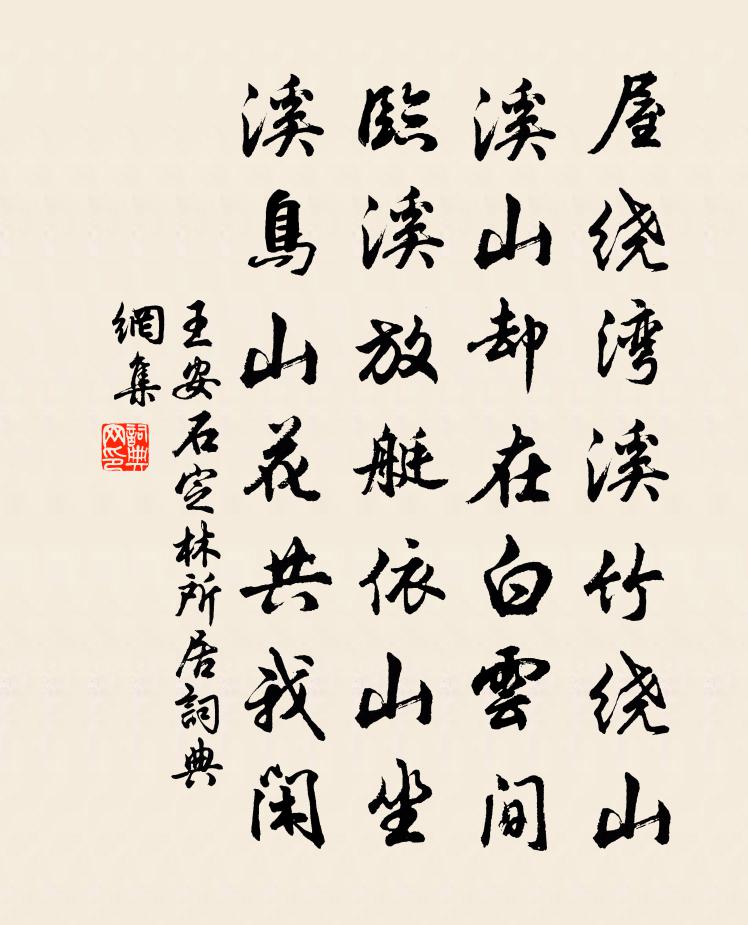 屋绕湾溪竹绕山
溪山却在白雲间
臨溪放艇依山坐
溪鳥山花共我闲
王安石定林所居詞典
網集
詞典
网印